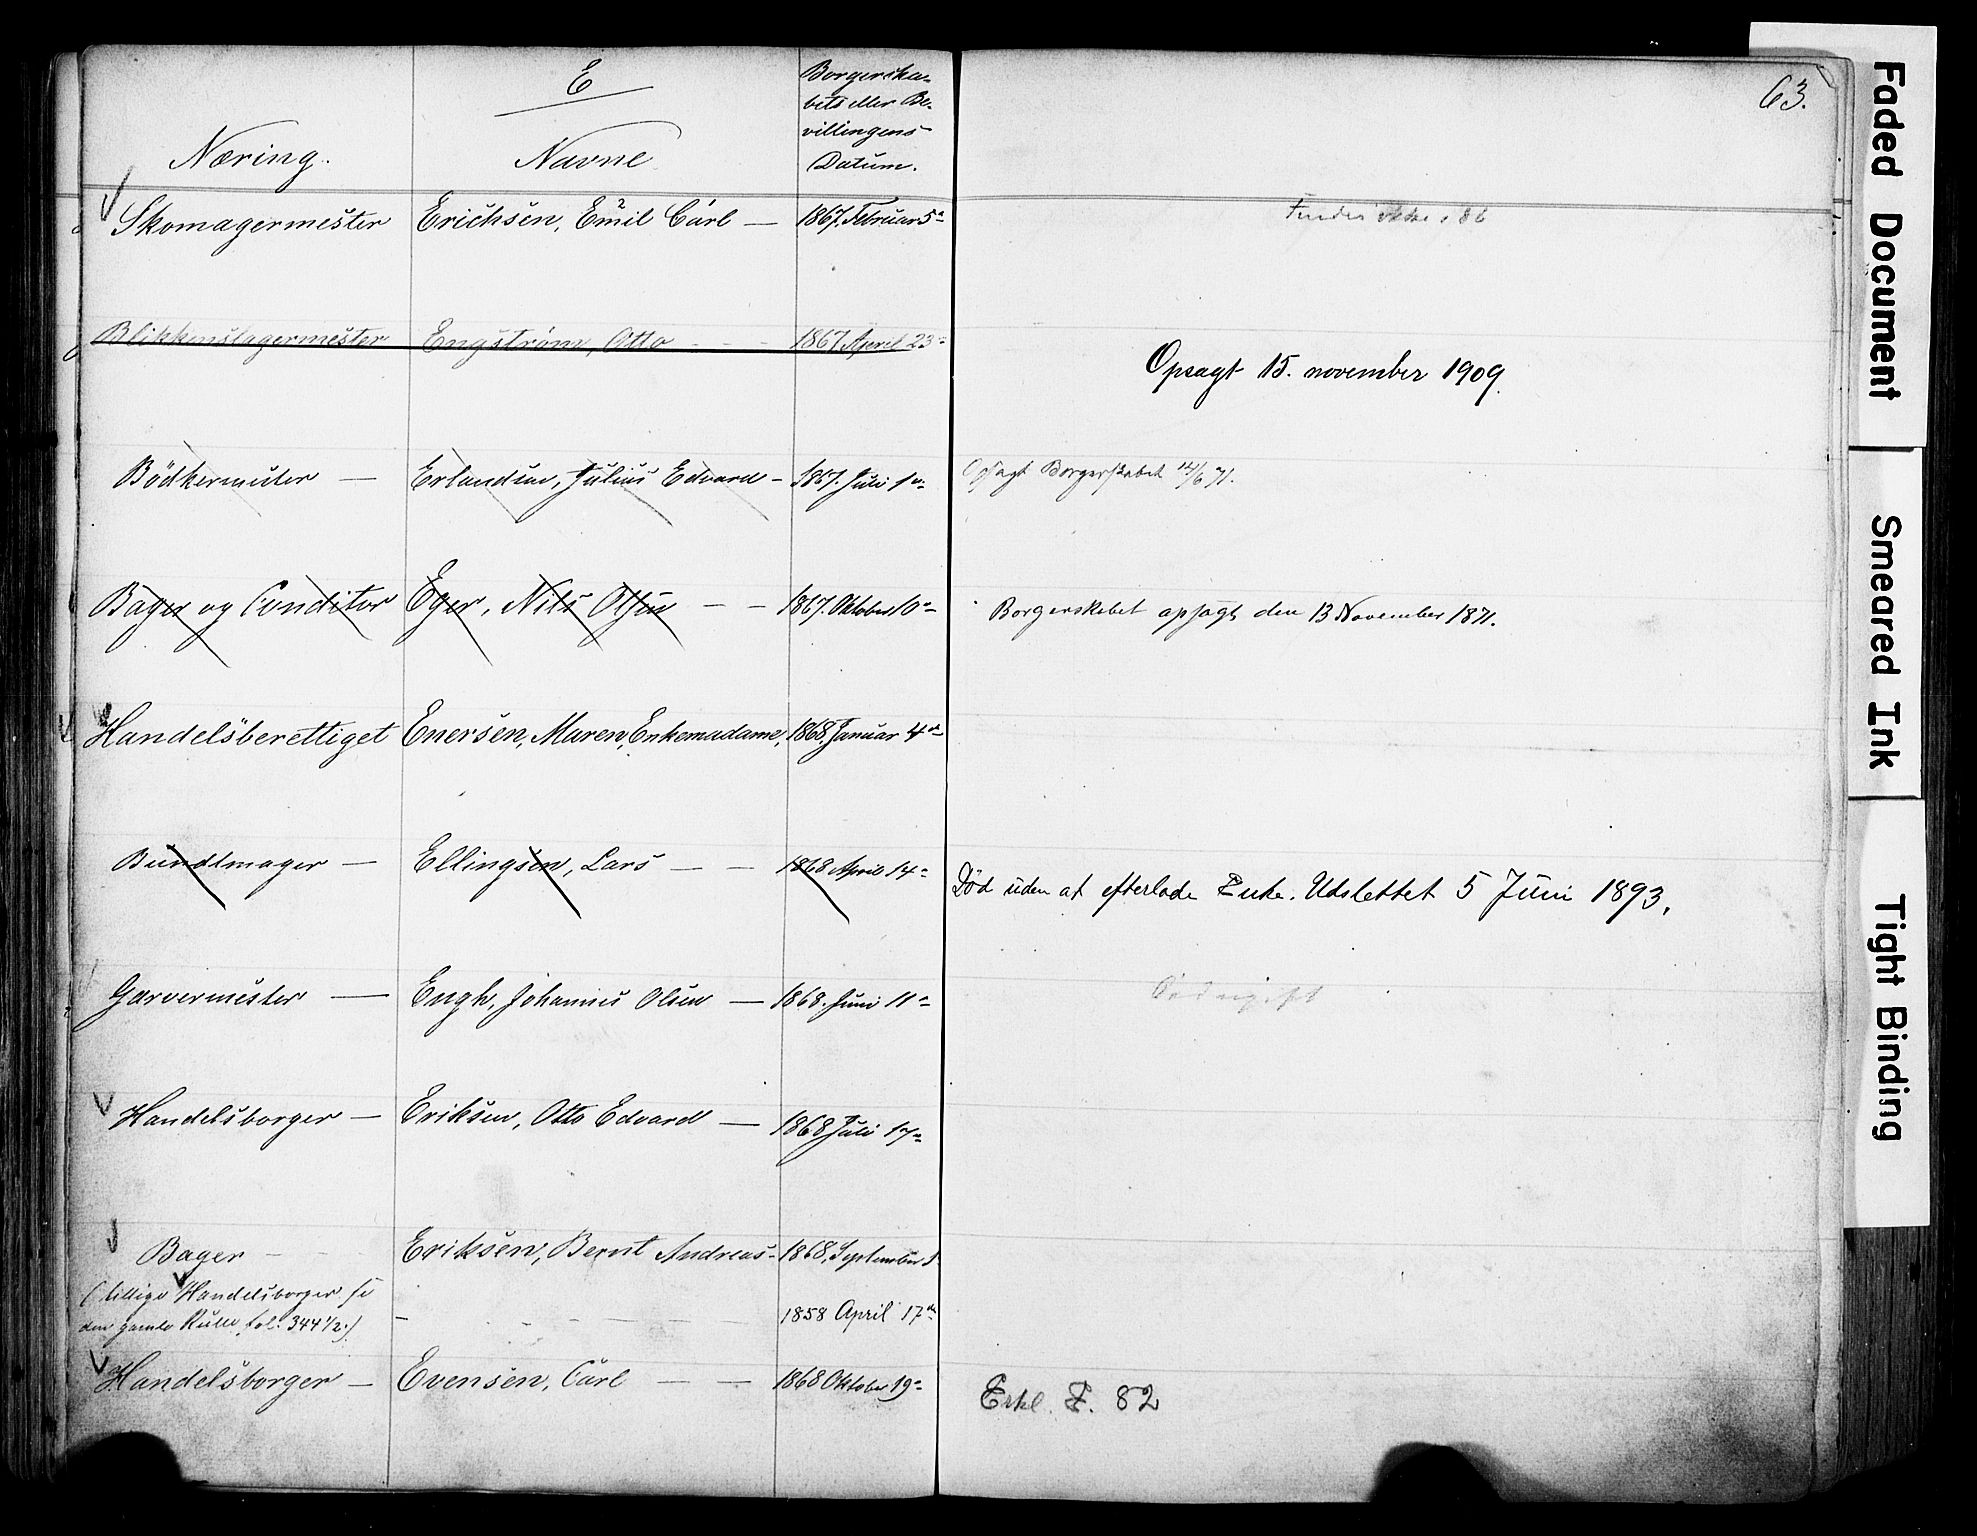 E
63.
Næring.
Navne
Borgerska-
bets eller Be-
villingens
Datum.
Skomagermester Erichsen, Emil Carl — 1867. Februar 5
Findes ikke i 86
Blikkenslagermester Engström, Otto - - - 1867 April 23
Opsagt 15. november 1909.
Bödkermester — Erlandsen, Julius Edvard - 1867. Juli 1
Opsagt Borgerskabet 14/6 71.
Bager og Conditor Eger, Nils Olsen — — 1867. Oktober 10
Borgerskabet opsagt den 13 November 1871.
Handelsberettiget Enersen, Maren, Enkemadame, 1868, Januar 4
Bundtmager — Ellingsen, Lars — — 1868 April 14
Död uden at efterlade Enke. Udslettet 5 Juni 1893.
Garvermester — Engh, Johannes Olsen — 1868. Juni 11
Död ugift
Handelsborger — Eriksen, Otto Edvard — 1868 Juli 17
Bager — — Eriksen, Bernt Andreas - 1868, September
(tillige Handelsborger se
den gamle Rulle fol. 344 1/2.) - - - - - - 1858 April 17de
Handelsborger — Evensen, Carl — — 1868 Oktober 19
Erkl. F. 82
Faded Document
Smeared Ink
Tight Binding